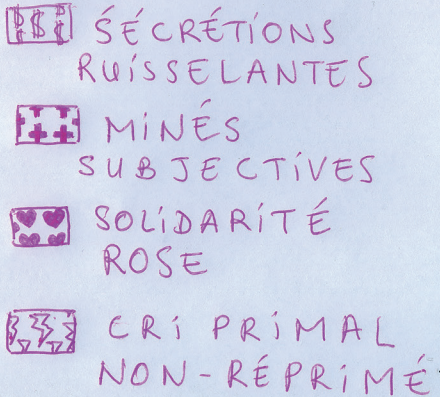 SÉCRÉTIONS
RUISSELANTES
MINÉS
SUBJECTIVES
SOLIDARITÉ
ROSE
CRI PRIMAL
NON-RÉPRIMÉ